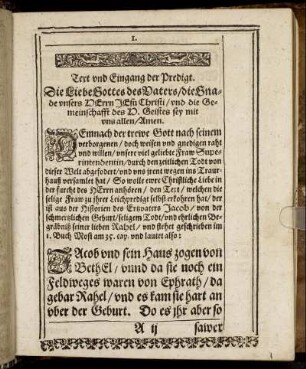 1.
Text vnd Eingang der Predigt.
Die Liebe Gottes des Vaters / die Gna-
de vnsers HErrn JEsu Christi / vnd die Ge-
meinschafft des H. Geistes sey mit
vns allen / Amen.
DEnnach der trewe Gott nach seinem
verborgenen / doch weisen vnd gnedigen raht
vnd willen / vnsere viel geliebte Fraw Supe-
rintendentin / durch den zeitlichen Todt von
dieser Welt abgefodert / vnd vns jrent wegen ins Traur-
hauß versamlet hat / So wolle ewre Christliche Liebe in
der furcht des HErrn anhören / den Text / welchen die
selige Fraw zu jhrer Leichpredigt selbst erkohren hat / der
ist aus der Historien des Ertzvaters Jacob / von der
schmertzlichen Geburt / seligem Todt / vnd ehrlichen Be-
gräbniß seiner lieben Rahel / vnd stehet geschrieben im
1. Buch Mosi am 35. cap. vnd lautet also:
JAcob vnd sein Haus zogen von
BethEl / vnnd da sie noch ein
Feldweges waren von Ephrath / da
gebar Rahel / vnd es kam sie hart an
vber der Geburt. Do es jhr aber so
A ij sawer